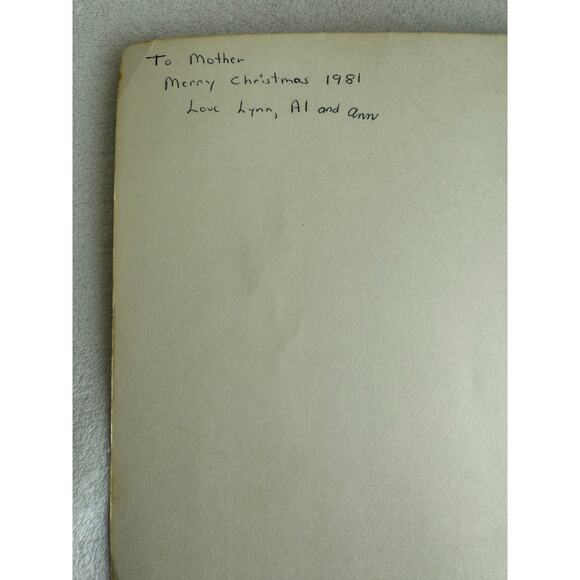 To Mother
Merry Christmas 1981
Love Lynn, Al and Ann